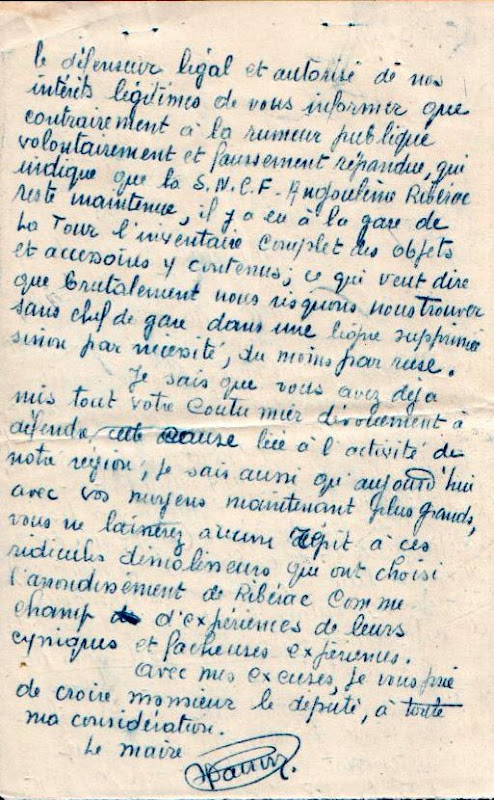 le défenseur légal et autorisé de nos
intérêts légitimes de vous informer que
contrairement à la rumeur publique
volontairement et faussement répandue, qui
indique que la S.N.C.F. Angoulème Ribérac
reste maintenue, il y a eu à la gare de
La Tour l'inventaire complet des objets
et accessoirs y contenus ; ce qui veut dire
que brutalement nous risquons nous trouver
sans chef de gare dans une ligne supprimée
sinon par nécessité, du moins par ruse.
Je sais que vous avez déja
mis tout votre coutumier dévouement à
défendre cette cause liée à l'activité de
notre région ; je sais aussi qu'aujourd'hui
avec vos moyens maintenant plus grands,
vous ne laisserez aucun répit à ces
ridicules démolisseurs qui ont choisi
l'arrondissement de Ribérac comme
champ d'expériences de leurs
cyniques et facheuses expériences.
Avec mes excuses, je vous prie
de croire, monsieur le député, à toute
ma considération.
Le maire